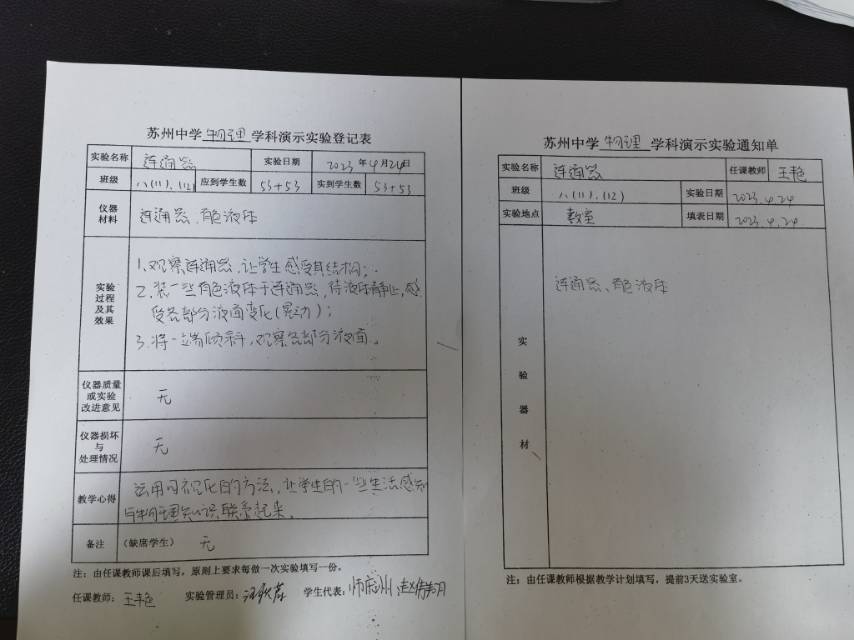 苏州中学 物理 学科演示实验登记表
实验名称 连通器 实验日期 2023年4月24日
班级 八(11)、(12) 应到学生数 53+53 实到学生数 53+53
仪器材料 连通器、有色液体
实验过程及其效果
1、观察连通器,让学生感受其结构;
2、装一些有色液体于连通器,待液体静止,感
受各部分液面变化(晃动);
3、将一端倾斜,观察各部分液面。
仪器质量或实验改进意见 无
仪器损坏与处理情况 无
教学心得 运用可视化的方法,让学生的一些生活感知
与物理知识联系起来。
备注 (缺席学生) 无
注:由任课教师课后填写,原则上要求每做一次实验填写一份。
任课教师:王艳 实验管理员: 学生代表:
苏州中学 物理 学科演示实验通知单
实验名称 连通器 任课教师 王艳
班级 八(11)、(12) 实验日期 2023.4.24
实验地点 教室 填表日期 2023.4.24
实验器材
连通器、有色液体
注:由任课教师根据教学计划填写,提前3天送实验室。